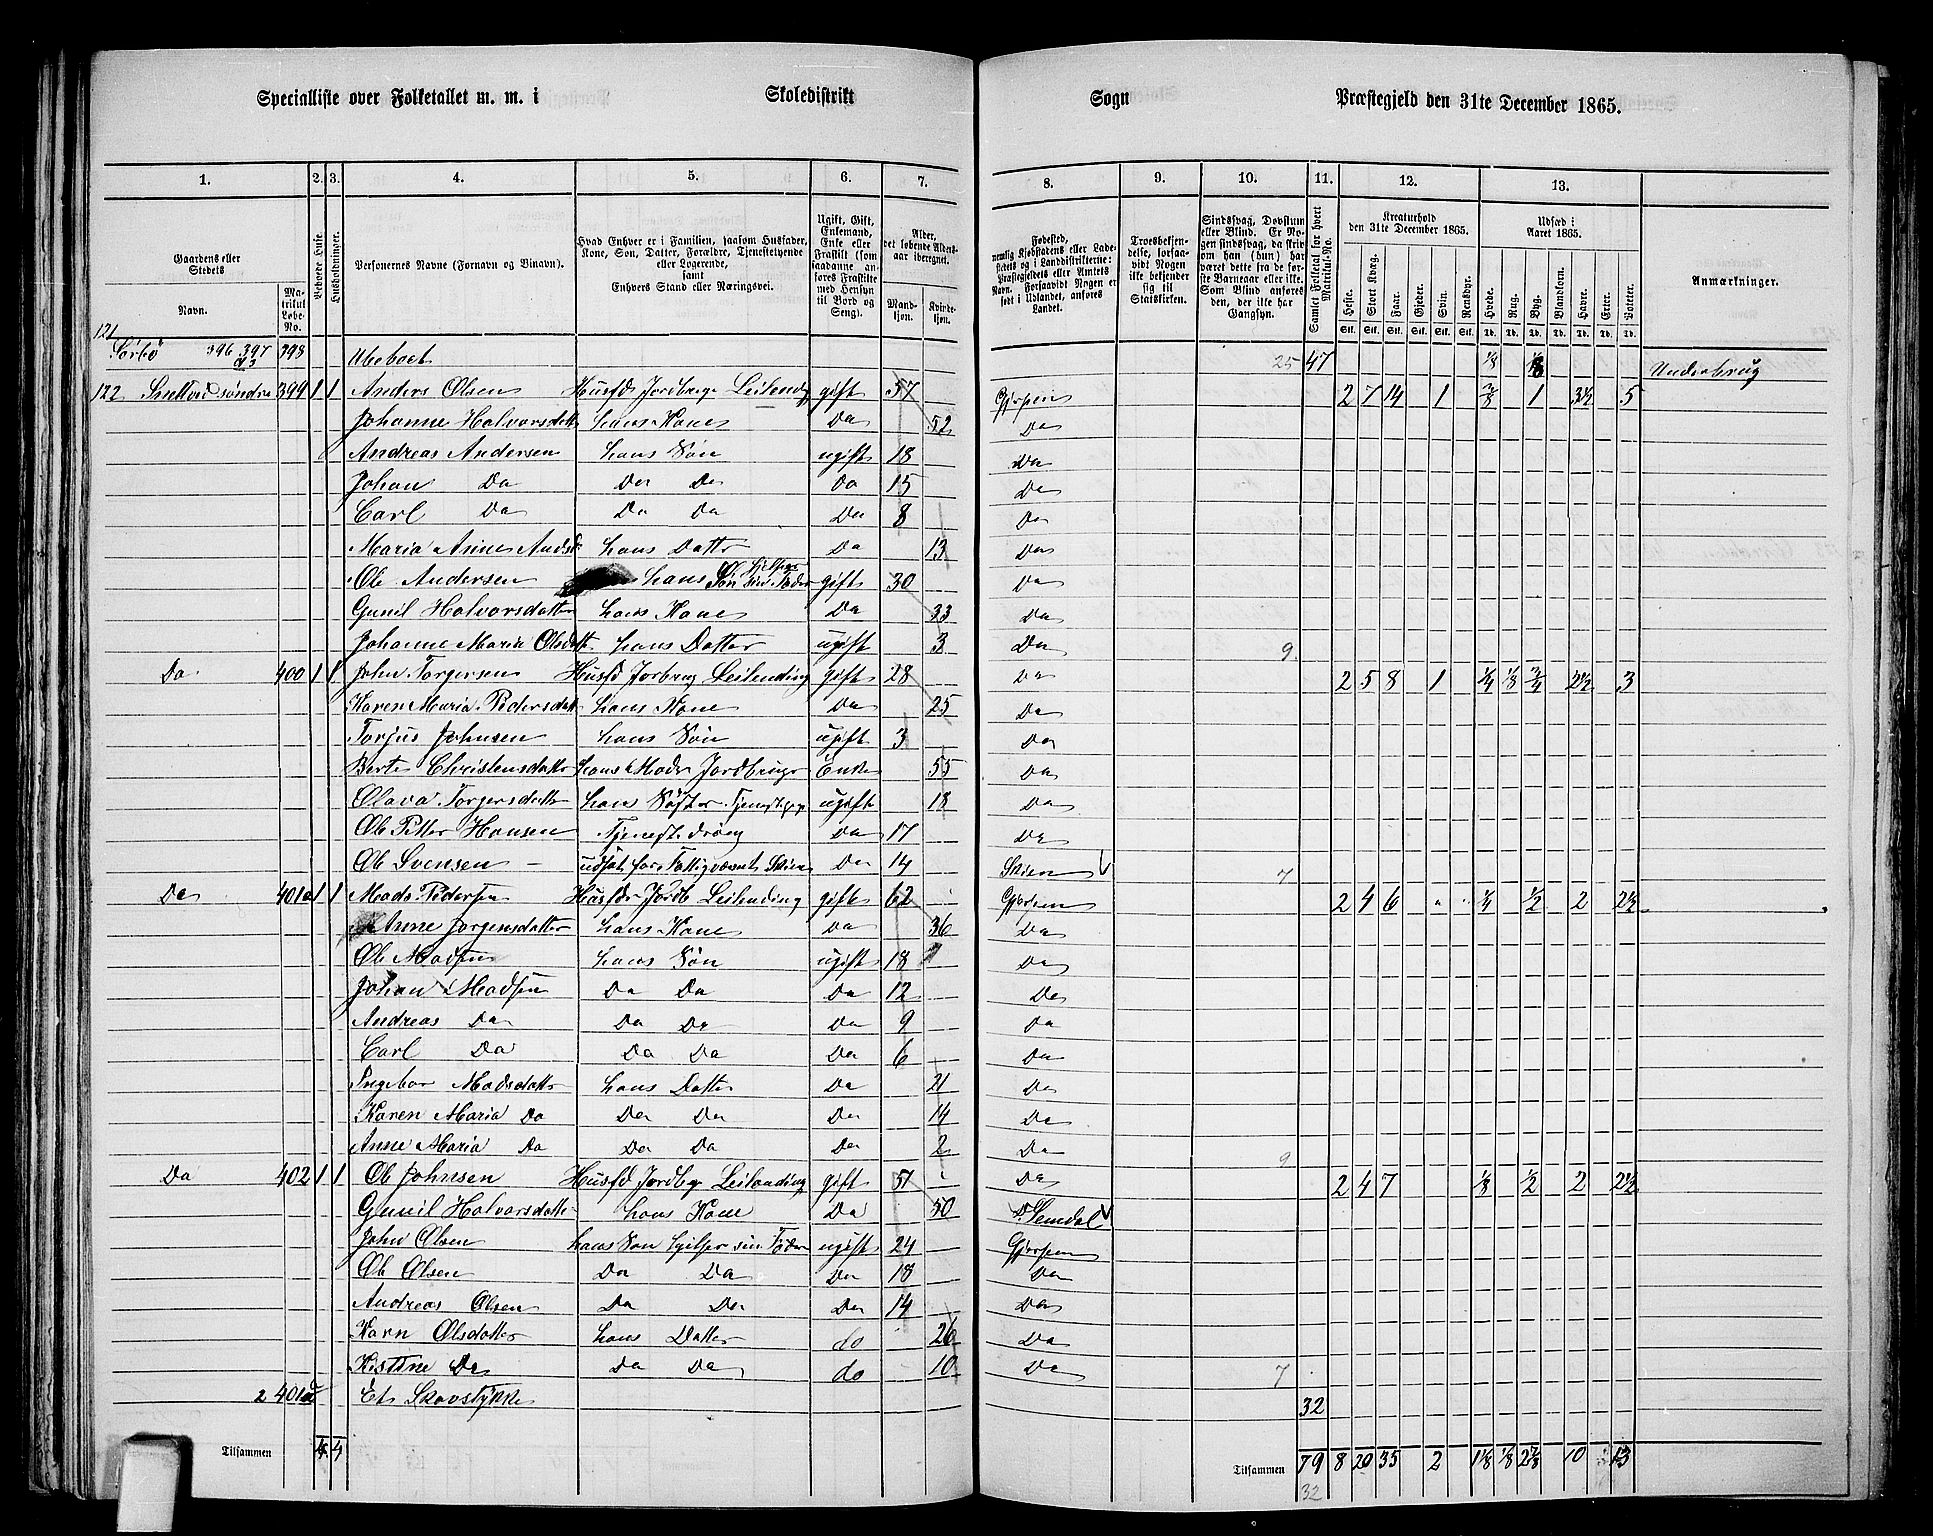 Specialliste over Folketallet m. m. i Skoledistrikt Sogn Præstegjeld den 31te December 1865.
1. 2. 3. 4. 5. 6. 7. 8. 9. 10. 11. 12. 13.
Gaardens eller Stedets
Navn. Matrikul Løbe-No.
Beboede Huse.
Husholdninger.
Personernes Navne (Fornavn og Binavn).
Hvad Enhver er i Familien, saasom Husfader, Kone, Søn, Datter, Forældre, Tjenestetyende eller Logerende, samt Enhvers Stand eller Næringsvei.
Ugift, Gift, Enkemand, Enke eller Fraskilt (som saadanne anføres Fraskilte med Hensyn til Bord og Seng).
Alder, det løbende Alders-aar iberegnet.
Mand-kjøn. Kvinde-kjøn.
Fødested, nemlig Kjøbstadens eller Ladestedets og i Landdistrikterne: Præstegjeldets eller Amtets Navn. Forsaavidt Nogen er født i Udlandet, anføres Landet.
Troesbekjendelse, forsaavidt Nogen ikke bekjender sig til Statskirken.
Sindssvag, Døvstum eller Blind. Er Nogen sindssvag, da skrives om han (hun) har været dette fra de første Barneaar eller ikke. Som Blind anføres den, der ikke har Gangsyn.
Samlet Folketal for hvert Matrikul-No.
Kreaturhold den 31te December 1865.
Heste. Stort Kvæg. Faar. Gjeder. Svin. Rensdyr.
Udsæd i Aaret 1865.
Hvede. Rug. Byg. Blandkorn. Havre. Erter. Poteter.
Anmærkninger.
121
Sørbø 396 397 398 Ubeboet 25 47 1/8 1/8 Underbrug
122 Snelltved søndre 399 1 1 Anders Olsen Husfd Jordbrugr Leilending gift 57 Gjerpen 2 7 14 1 3/8 1 3½ 5
Johanne Halvorsdatt hans Kone Da 52 Da
Andreas Andersen hans Søn ugift 18 Da
Johan Da Da Da Da 15 Da
Carl Da Da Da Da 8 Da
Maria Anne Andsd. hans Datter Da 13 Da
Ole Andersen hans Søn hjelper sin Fader gift 30 Da
Gunil Halvorsdatter hans Kone Da 33 Da
Johanne Maria Olsdatt. hans Datter ugift 3 Da 9
Da 400 1 1 John Torgersen Husfd Jorbrug Leilending gift 28 Da 2 5 8 1 1/4 1/8 3/4 2½ 3
Karen Maria Pedersdatt hans Kone Da 25 Da
Torjus Johnsen hans Søn ugift 3 Da
Berte Christensdatter hans Moder Jordbruger Enke 55 Da
Olava Torgersdatter hans Søster Tjenestpige ugift 18 Da
Ole Petter Hansen Tjenestdreng Da 17 Da
Ole Svensen udsat for Fattigvæsnet Skien Da 14 Skien 7
Da 401a 1 1 Mads Pedersen Husfdr Jordb Leilending gift 62 Gjerpen 2 4 6 1/4 1/2 2 2½
Anne Jorgensdatter hans Kone Da 36 Da
Ole Madsen hans Søn ugift 18 Da
Johan Madsen Da Da Da 12 Da
Andreas Da Da Da Da 9 Da
Carl Da Da Da Da 6 Da
Ingebor Madsdatter hans Datter Da 21 Da
Karen Maria Da Da Da Da 14 Da
Anne Maria Da Da Da Da 2 Da 9
Da 402 1 1 Ole Johnsen Husfd Jordbg Leilending gift 51 Da 2 4 7 1/8 1/2 2 2½
Gunil Halvorsdatter hans Kone Da 50 Semdal
John Olsen hans Søn hjelper sin Fader ugift 24 Gjerpen
Ole Olsen Da Da Da 18 Da
Andreas Olsen Da Da Da 14 Da
Karn Olsdatter hans Datter do 26 Da
Kistine Da Da Da do 10 Da 7
2 401 Et Skovstykke 32
Tilsammen 4 4 Tilsammen 79 8 20 35 2 1 1/8 1/8 2 7/8 10 13
32